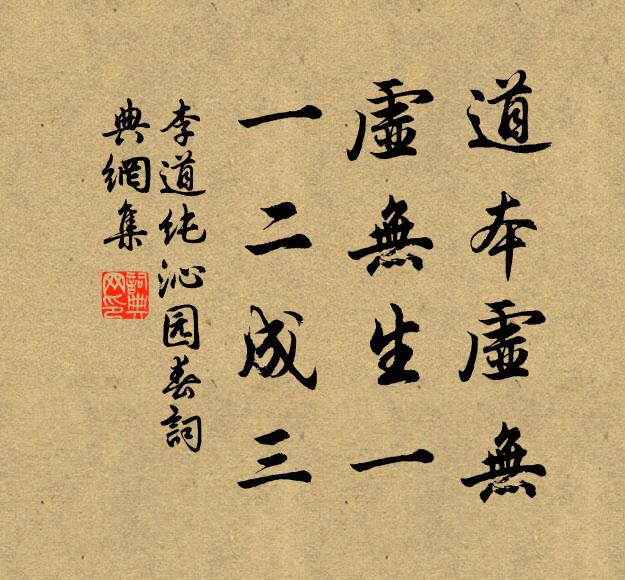 道本虛無
虛無生一
一二成三
李道纯沁园春詞
典網集
詞典網印